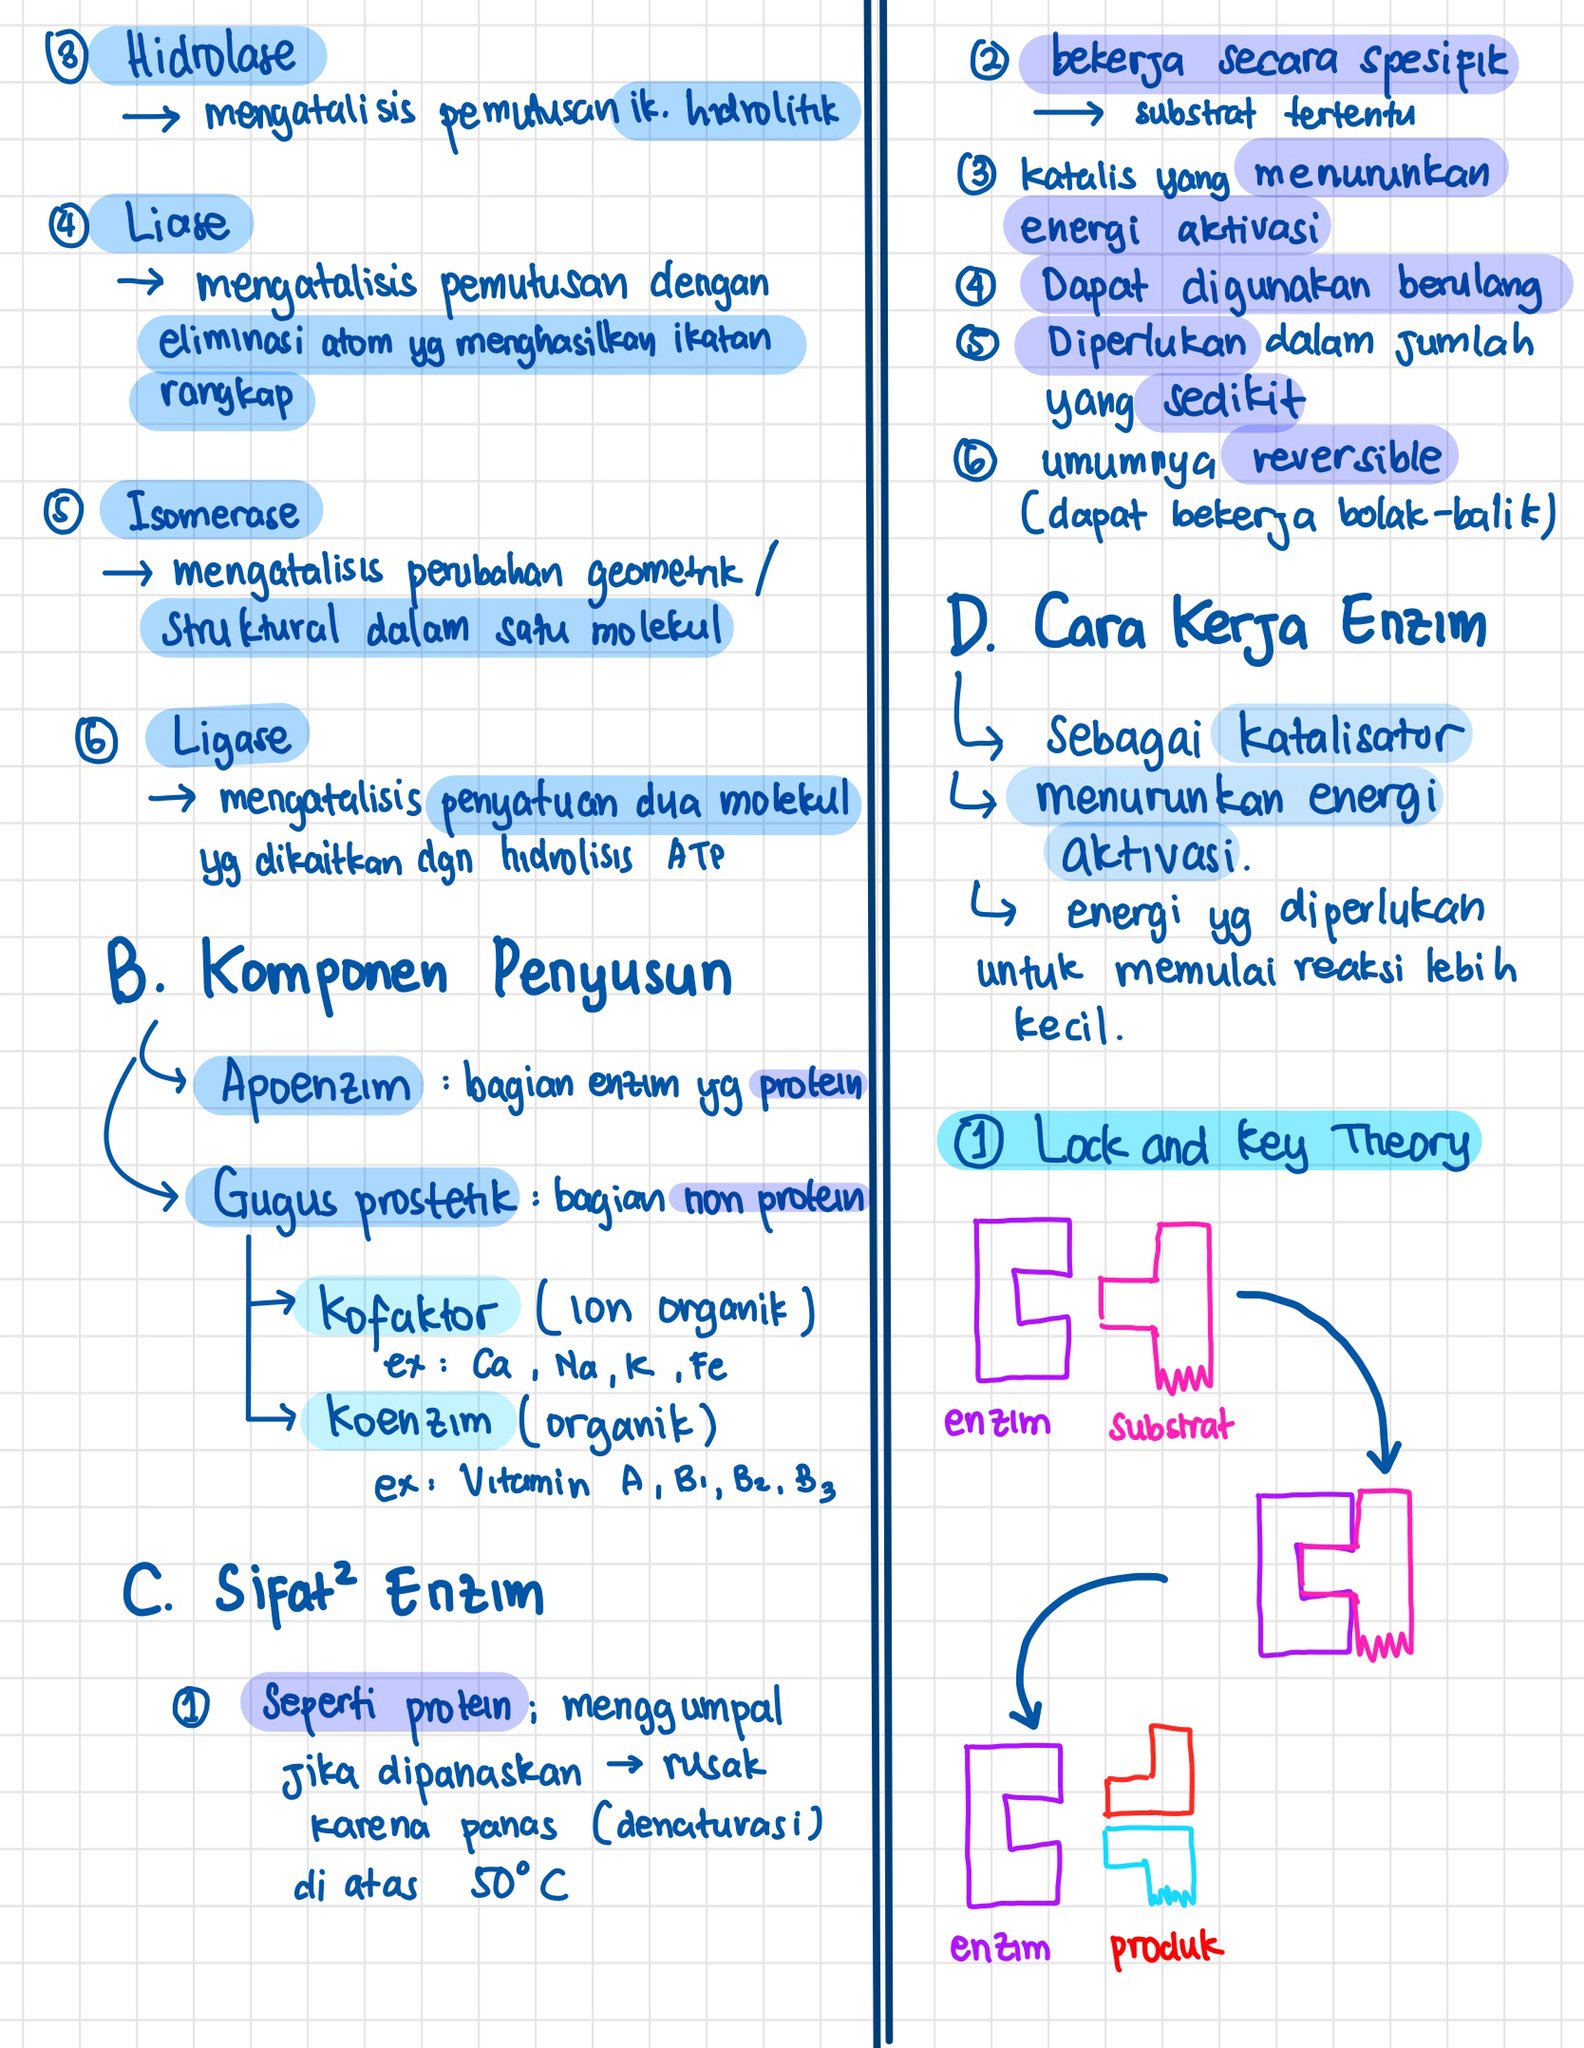 ③ Hidrolase
→ mengatalisis pemutusan ik. hidrolitik
④ Liase
→ mengatalisis pemutusan dengan
eliminasi atom yg menghasilkan ikatan
rangkap
⑤ Isomerase
→ mengatalisis perubahan geometrik /
struktural dalam satu molekul
⑥ Ligase
→ mengatalisis penyatuan dua molekul
yg dikaitkan dgn hidrolisis ATP
B. Komponen Penyusun
Apoenzim : bagian enzim yg protein
Gugus prostetik : bagian non protein
Kofaktor (ion organik)
ex : Ca, Na, K, Fe
Koenzim (organik)
ex : Vitamin A, B1, B2, B3
C. Sifat² Enzim
① Seperti protein ; menggumpal
jika dipanaskan → rusak
karena panas (denaturasi)
di atas 50°C
② bekerja secara spesifik
→ substrat tertentu
③ katalis yang menurunkan
energi aktivasi
④ Dapat digunakan berulang
⑤ Diperlukan dalam jumlah
yang sedikit
⑥ umumnya reversible
(dapat bekerja bolak-balik)
D. Cara Kerja Enzim
↳ Sebagai katalisator
↳ menurunkan energi
aktivasi.
↳ energi yg diperlukan
untuk memulai reaksi lebih
kecil.
① Lock and Key Theory
enzim substrat
enzim produk